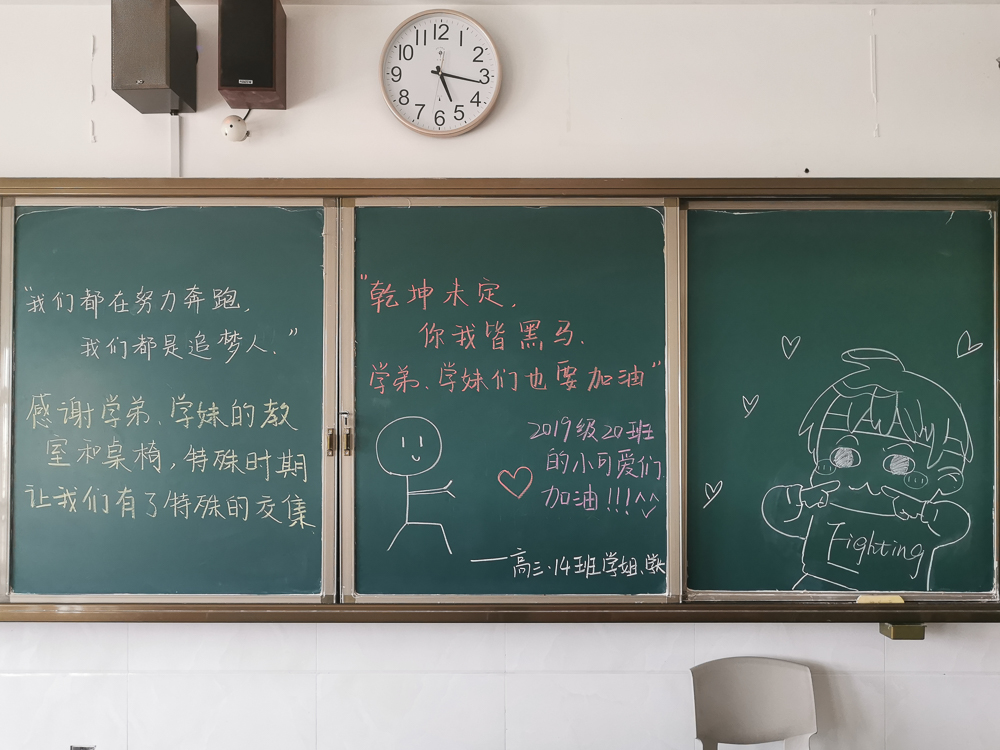 12
1
2
3
4
5
6
7
8
9
10
11
"我们都在努力奔跑,
我们都是追梦人."
感谢学弟、学妹的教
室和桌椅,特殊时期
让我们有了特殊的交集
"乾坤未定,
你我皆黑马.
学弟、学妹们也要加油"
2019级20班
的小可爱们
加油!!!^^
——高三·14班学姐、学长
Fighting